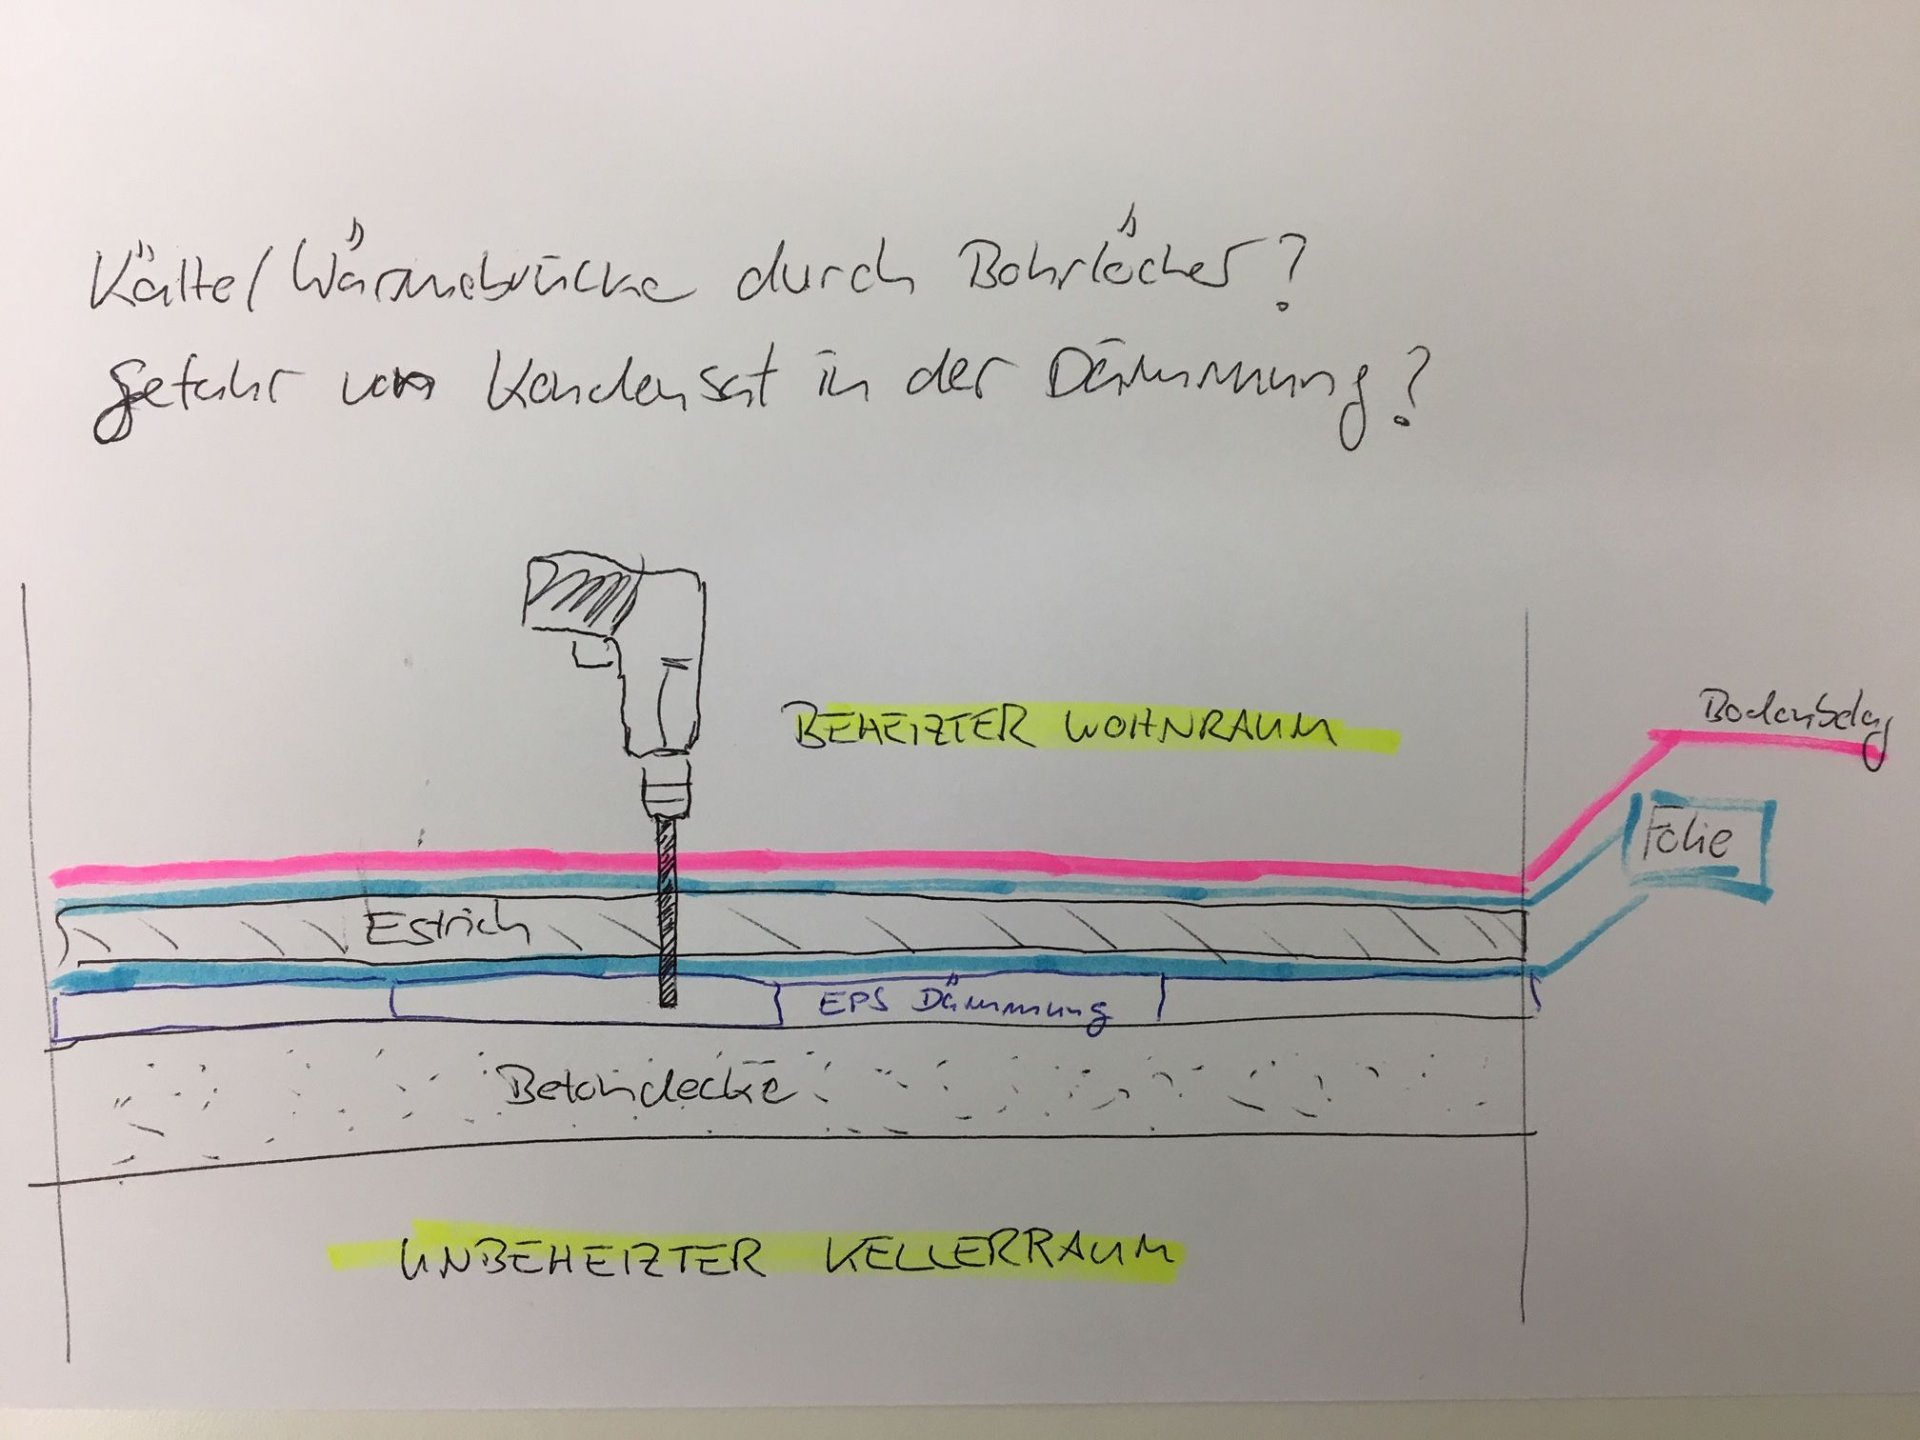 Kälte/Wärmebrücke durch Bohrlöcher?
Gefahr von Kondensat in der Dämmung?
BEHEIZTER WOHNRAUM
Bodenbelag
Folie
Estrich
EPS Dämmung
Betondecke
UNBEHEIZTER KELLERRAUM